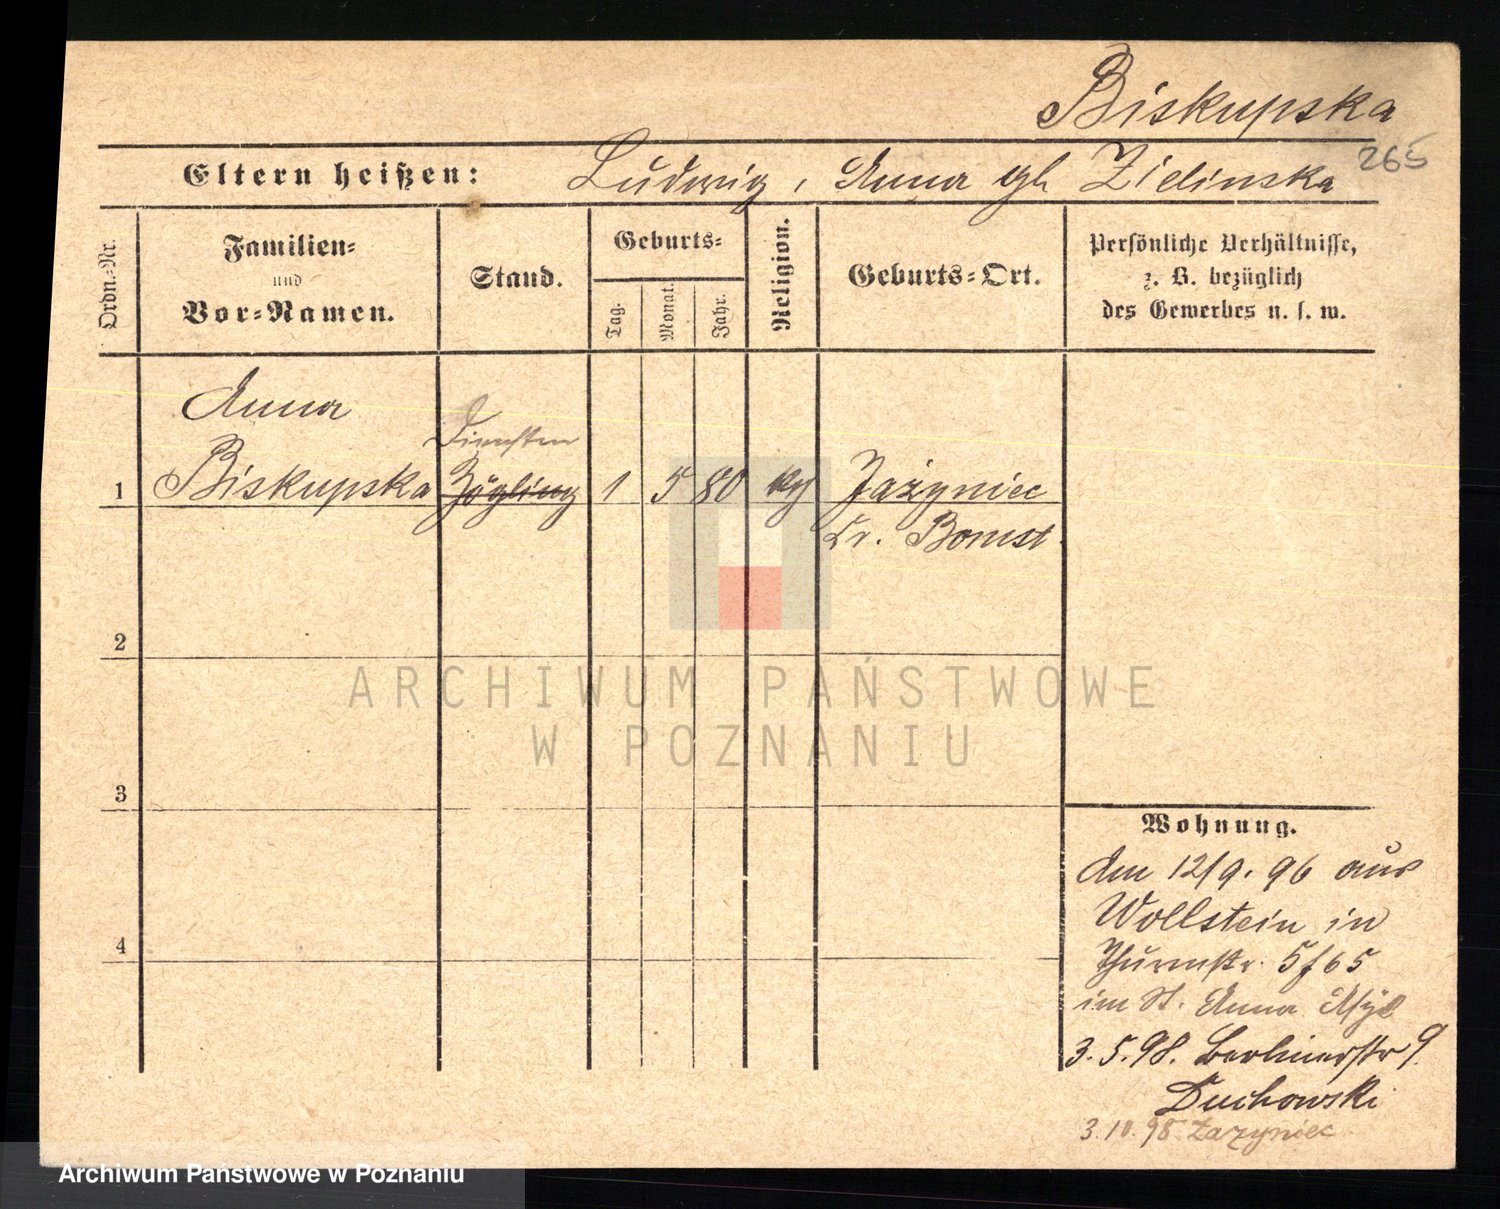 Biskupska
265
Eltern heißen: Ludwig, Anna gb Zielinska
Ordn.-Nr.
Familien-
und
Vor-Namen.
Stand.
Geburts-
Tag.
Monat.
Jahr.
Religion.
Geburts-Ort.
Persönliche Verhältnisse,
z. B. bezüglich
des Gewerbes u. s. w.
Anna
Dienstm
1 Biskupska Zögling 1 5 80 kg Jażyniec
Kr. Bomst
2
ARCHIWUM PAŃSTWOWE
W POZNANIU
3
Wohnung.
Am 12/9. 96 aus
Wollstein in
Thurmstr. 5f65
im St. Anna Asyl
4
3.5.98. Berlinerstr 9.
Duchowski
3.10.98 Zazyniec
Archiwum Państwowe w Poznaniu